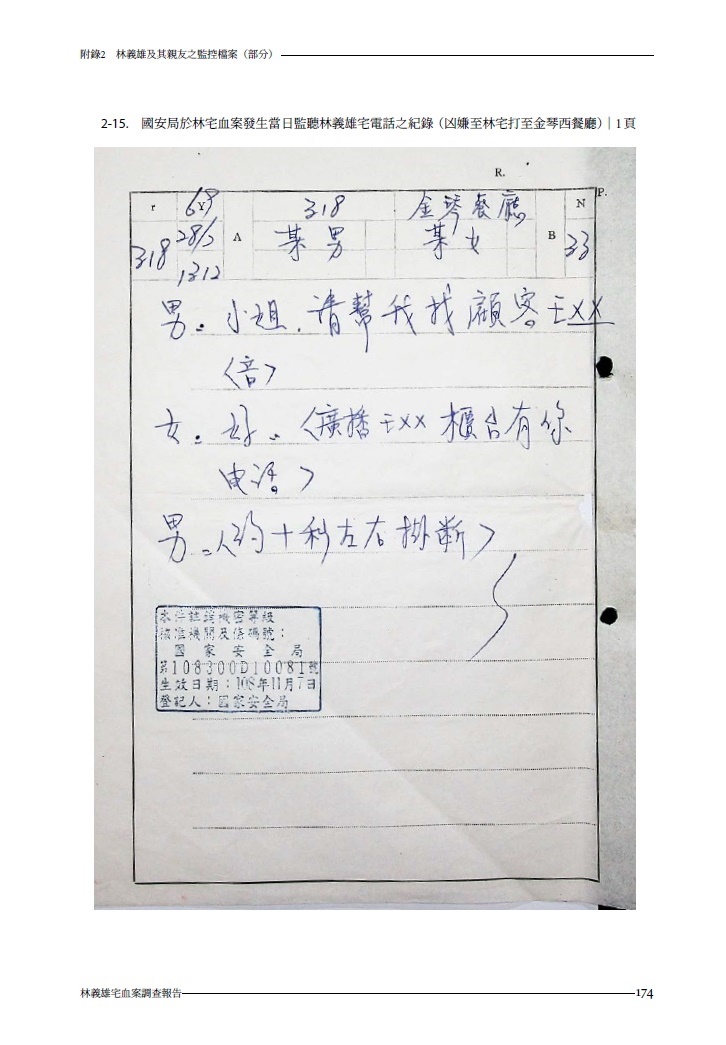 附錄2 林義雄及其親友之監控檔案（部分）
2-15. 國安局於林宅血案發生當日監聽林義雄宅電話之紀錄（凶嫌至林宅打至金琴西餐廳）｜1頁
R.
P.
r 69 Y 318 金琴餐廳 N
318 28/3 A 某男 某女 B 33
1312
男：小姐．請幫我找顧客王XX
〈音〉
女：好．〈廣播王XX櫃台有你
电话。〉
男：〈約十秒左右掛斷〉
本件註銷機密等級
核准機關及條碼號：
國家安全局
第108300D10081號
生效日期：108年11月7日
登記人：國家安全局
林義雄宅血案調查報告 174